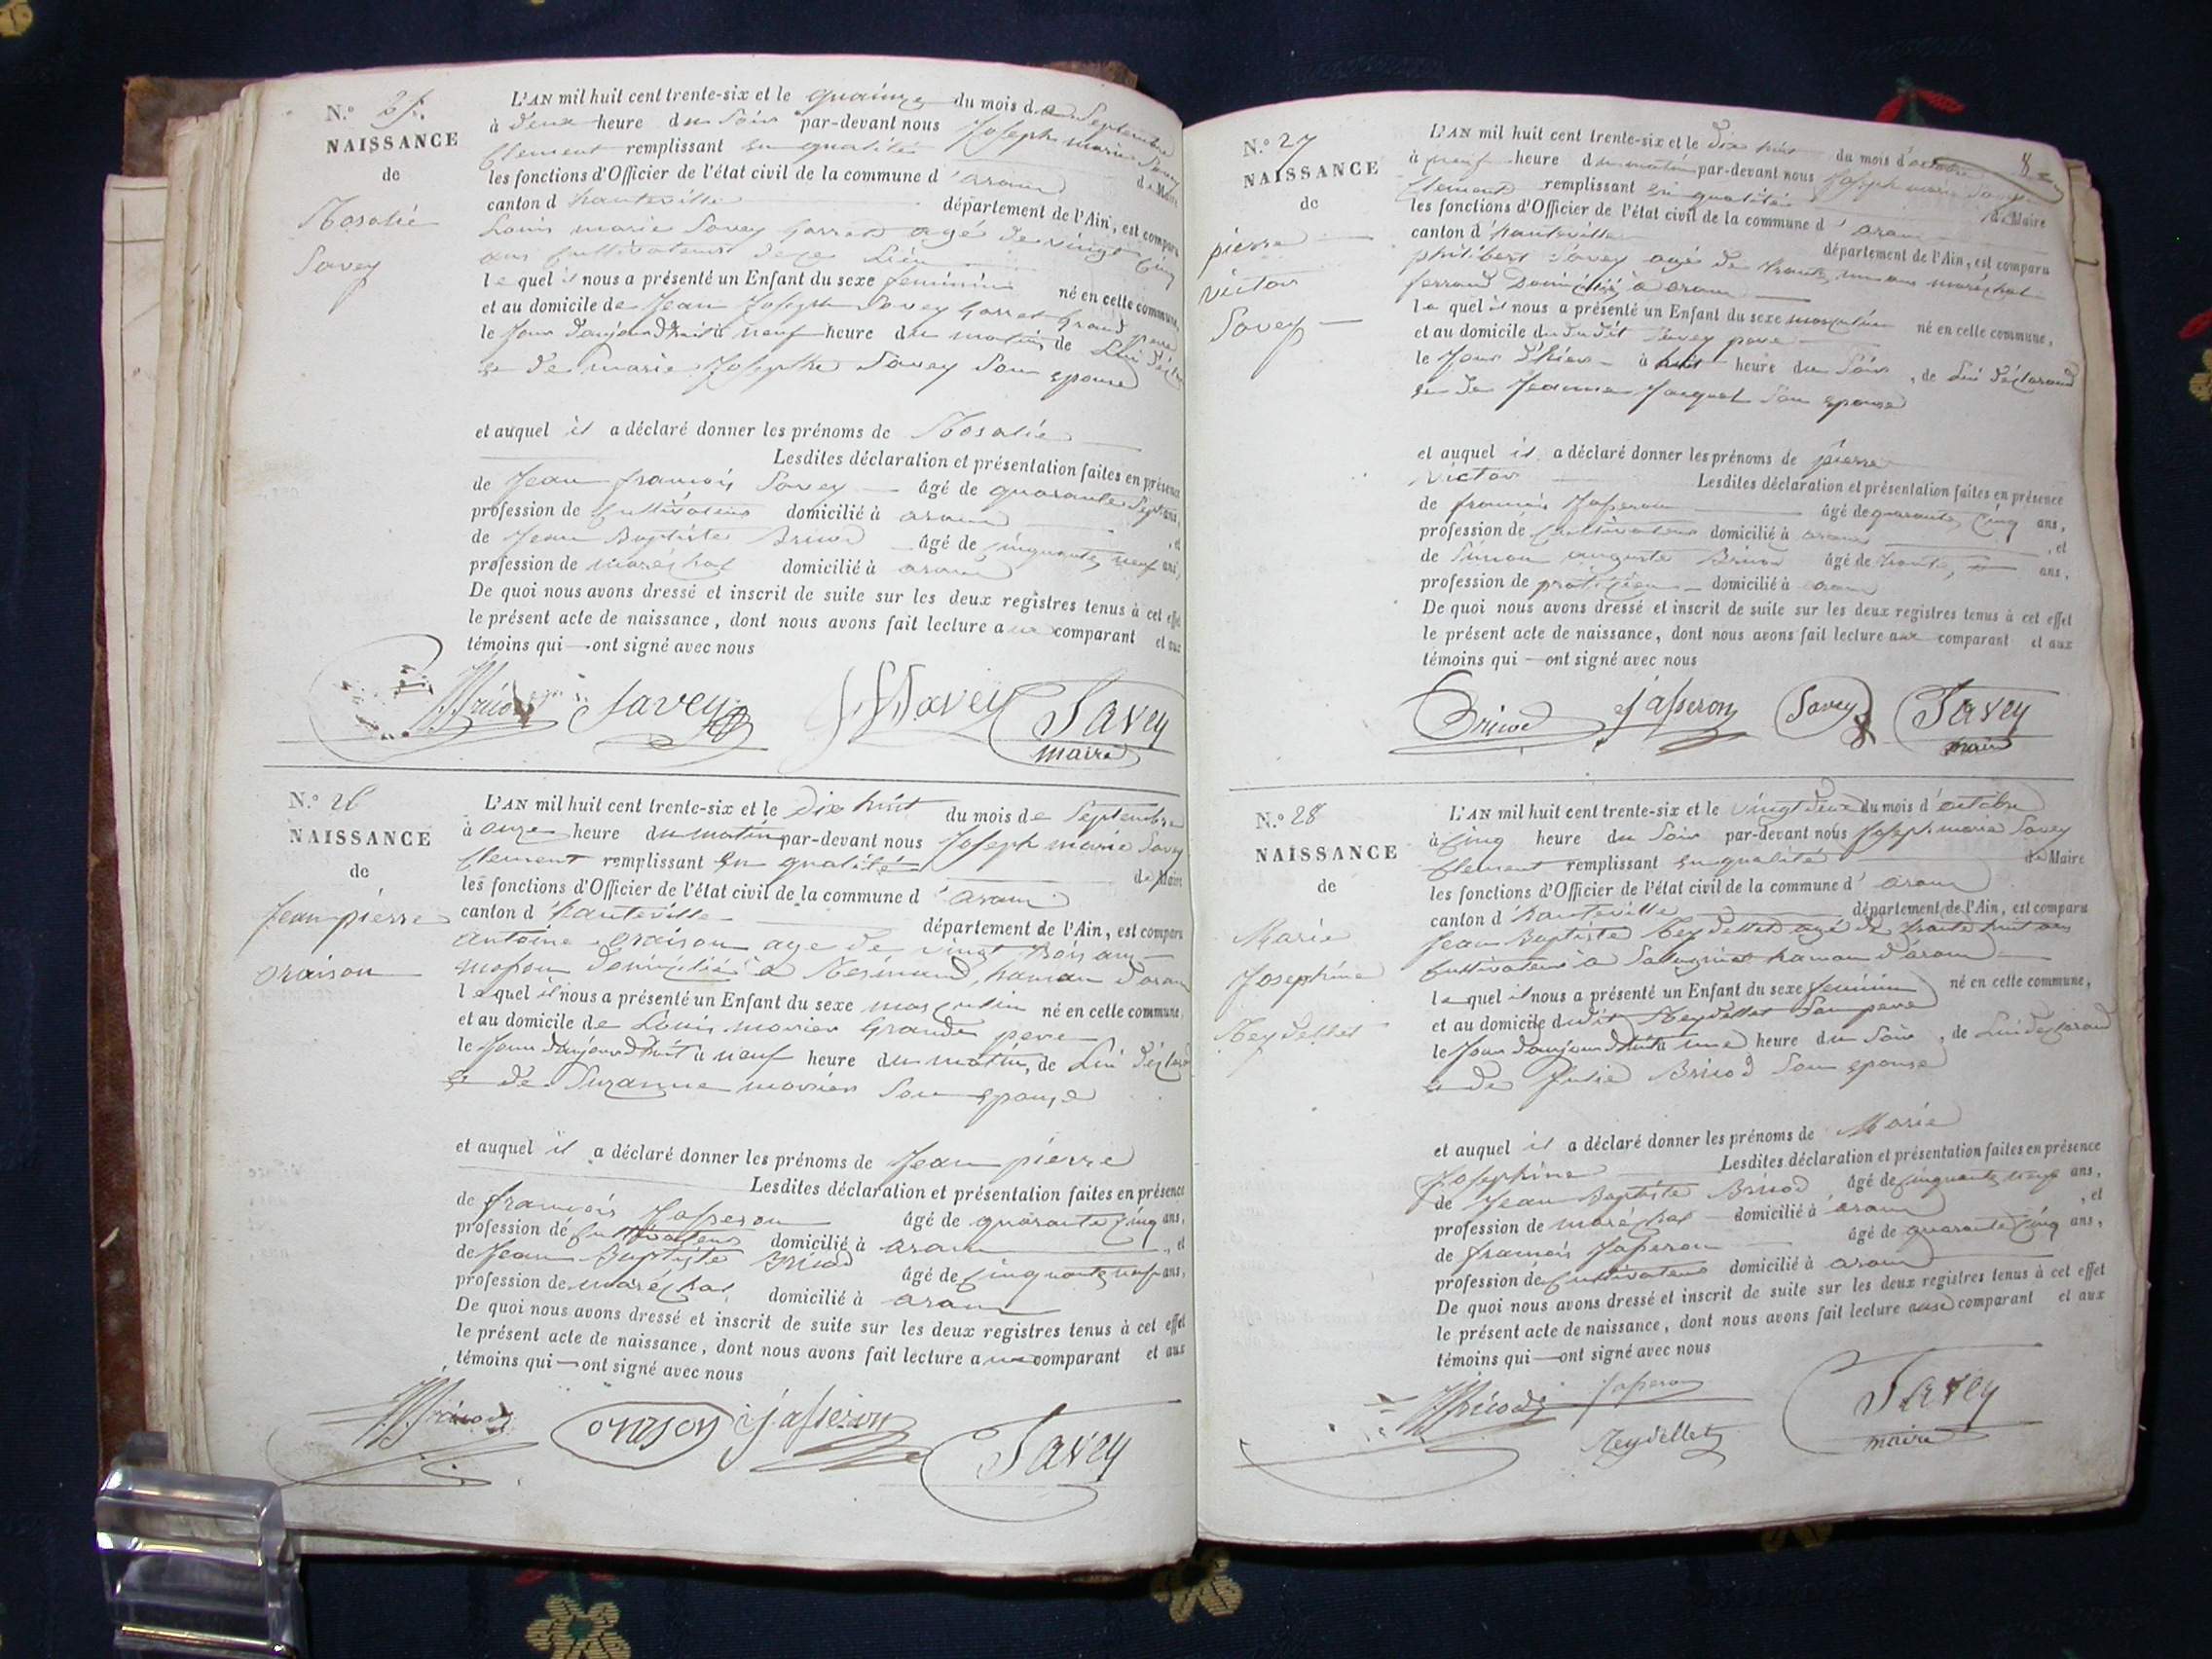 N.º 25.
NAISSANCE
de
Rosalie
Savey
L'AN mil huit cent trente-six et le quainze du mois de Septembre
à deux heure du Soir par-devant nous Joseph marie Savey
Clement remplissant en qualité de Maire
les fonctions d'Officier de l'état civil de la commune d'aranc
canton d'hauteville département de l'Ain, est comparu
Louis marie Savey Gorret agé de vingt cinq
ans Cultivateur de ce Lieu
lequel il nous a présenté un Enfant du sexe feminin né en cette commune,
et au domicile de Jean Joseph Savey Gorret Grand pere
le Jour d'aujourd'huit à neuf heure du matin de Lui déclar
et de marie Josephte Savey Son epouse
et auquel il a déclaré donner les prénoms de Rosalie
Lesdites déclaration et présentation faites en présence
de Jean francois Savey âgé de quarante Sept ans,
profession de Cultivateur domicilié à aranc , et
de Jean Baptiste Bricod âgé de cinquante neuf ans,
profession de maréchal domicilié à aranc
De quoi nous avons dressé et inscrit de suite sur les deux registres tenus à cet effet
le présent acte de naissance, dont nous avons fait lecture au comparant et aux
témoins qui — ont signé avec nous
Bricod Savey Savey Savey
maire
N.º 26
NAISSANCE
de
Jean pierre
oraison
L'AN mil huit cent trente-six et le dix huit du mois de Septembre
à onze heure du matin par-devant nous Joseph marie Savey
Clement remplissant En qualité de Maire
les fonctions d'Officier de l'état civil de la commune d'aranc
canton d'hauteville département de l'Ain, est comparu
antoine oraison age de vingt trois ans
masson domicilié à Resinand, hamau d'aranc
lequel il nous a présenté un Enfant du sexe masculin né en cette commune,
et au domicile de Louis morier Grand pere
le Jour d'aujourd'huit à neuf heure du matin, de Lui déclar
et de Suzanne morier Son epouse
et auquel il a déclaré donner les prénoms de Jean pierre
Lesdites déclaration et présentation faites en présence
de francois Jasseron âgé de quarante cinq ans,
profession de Cultivateur domicilié à aranc , et
de Jean Baptiste Bricod âgé de cinquante neuf ans,
profession de maréchal domicilié à aranc
De quoi nous avons dressé et inscrit de suite sur les deux registres tenus à cet effet
le présent acte de naissance, dont nous avons fait lecture au comparant et aux
témoins qui — ont signé avec nous
Bricod orason Jasseron Savey
N.º 27
NAISSANCE
de
pierre
victor
Savey
8
L'AN mil huit cent trente-six et le dix huit du mois d'octobre
à neuf heure du matin par-devant nous Joseph marie Savey
Clement remplissant en qualité de Maire
les fonctions d'Officier de l'état civil de la commune d'aranc
canton d'hauteville département de l'Ain, est comparu
philibert Savey agé de trente un ans maréchal
ferrand Domicilié à aranc
lequel il nous a présenté un Enfant du sexe masculin né en cette commune,
et au domicile du dit Savey pere
le Jour d'hier à huit heure du Soir , de Lui déclarand
et de Jeanne Jacquet Son epouse
et auquel il a déclaré donner les prénoms de pierre
victor Lesdites déclaration et présentation faites en présence
de francois Jasseron âgé de quarante cinq ans,
profession de Cultivateur domicilié à aranc , et
de Simon auguste Bricod âgé de trente ans,
profession de praticien domicilié à aranc
De quoi nous avons dressé et inscrit de suite sur les deux registres tenus à cet effet
le présent acte de naissance, dont nous avons fait lecture aux comparant et aux
témoins qui — ont signé avec nous
Bricod Jasseron Savey Savey
maire
N.º 28
NAISSANCE
de
Marie
Josephine
Reydellet
L'AN mil huit cent trente-six et le vingt deux du mois d'octobre
à cinq heure du Soir par-devant nous Joseph marie Savey
Clement remplissant en qualité de Maire
les fonctions d'Officier de l'état civil de la commune d'aranc
canton d'hauteville département de l'Ain, est comparu
Jean Baptiste Reydellet agé de trente huit ans
Cultivateur à hamau d'aranc
lequel il nous a présenté un Enfant du sexe feminin né en cette commune,
et au domicile dudit Reydellet Son pere
le Jour d'aujourd'huit à une heure du Soir , de Lui declarand
et de Julie Bricod Son epouse
et auquel il a déclaré donner les prénoms de Marie
Josephine Lesdites déclaration et présentation faites en présence
de Jean Baptiste Bricod âgé de cinquante neuf ans,
profession de maréchal domicilié à aranc , et
de francois Jasseron âgé de quarante cinq ans,
profession de Cultivateur domicilié à aranc
De quoi nous avons dressé et inscrit de suite sur les deux registres tenus à cet effet
le présent acte de naissance, dont nous avons fait lecture aux comparant et aux
témoins qui — ont signé avec nous
Bricod Jasseron Savey
Reydellet maire